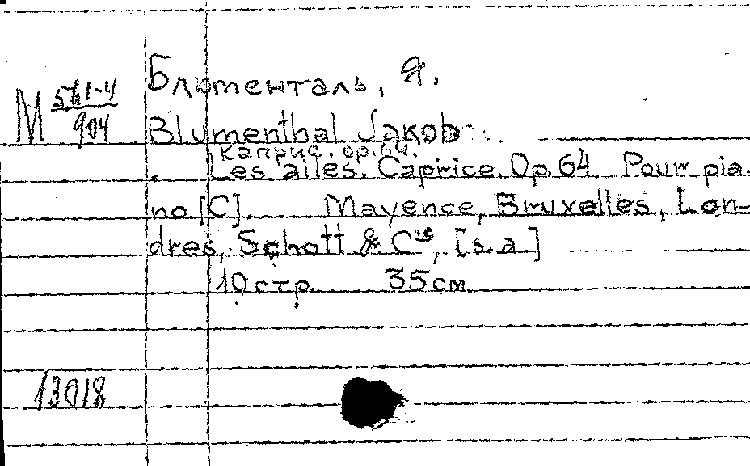 Блюменталь, Я.
М 561-4/904
Blumenthal Jakob
Каприс. ор. 64.
Les ailes. Caprice. Op. 64. Pour pia-
no [C]. Mayence, Bruxelles, Lon-
dres, Schott & Cie, [s.a.]
10 стр. 35 см.
13018